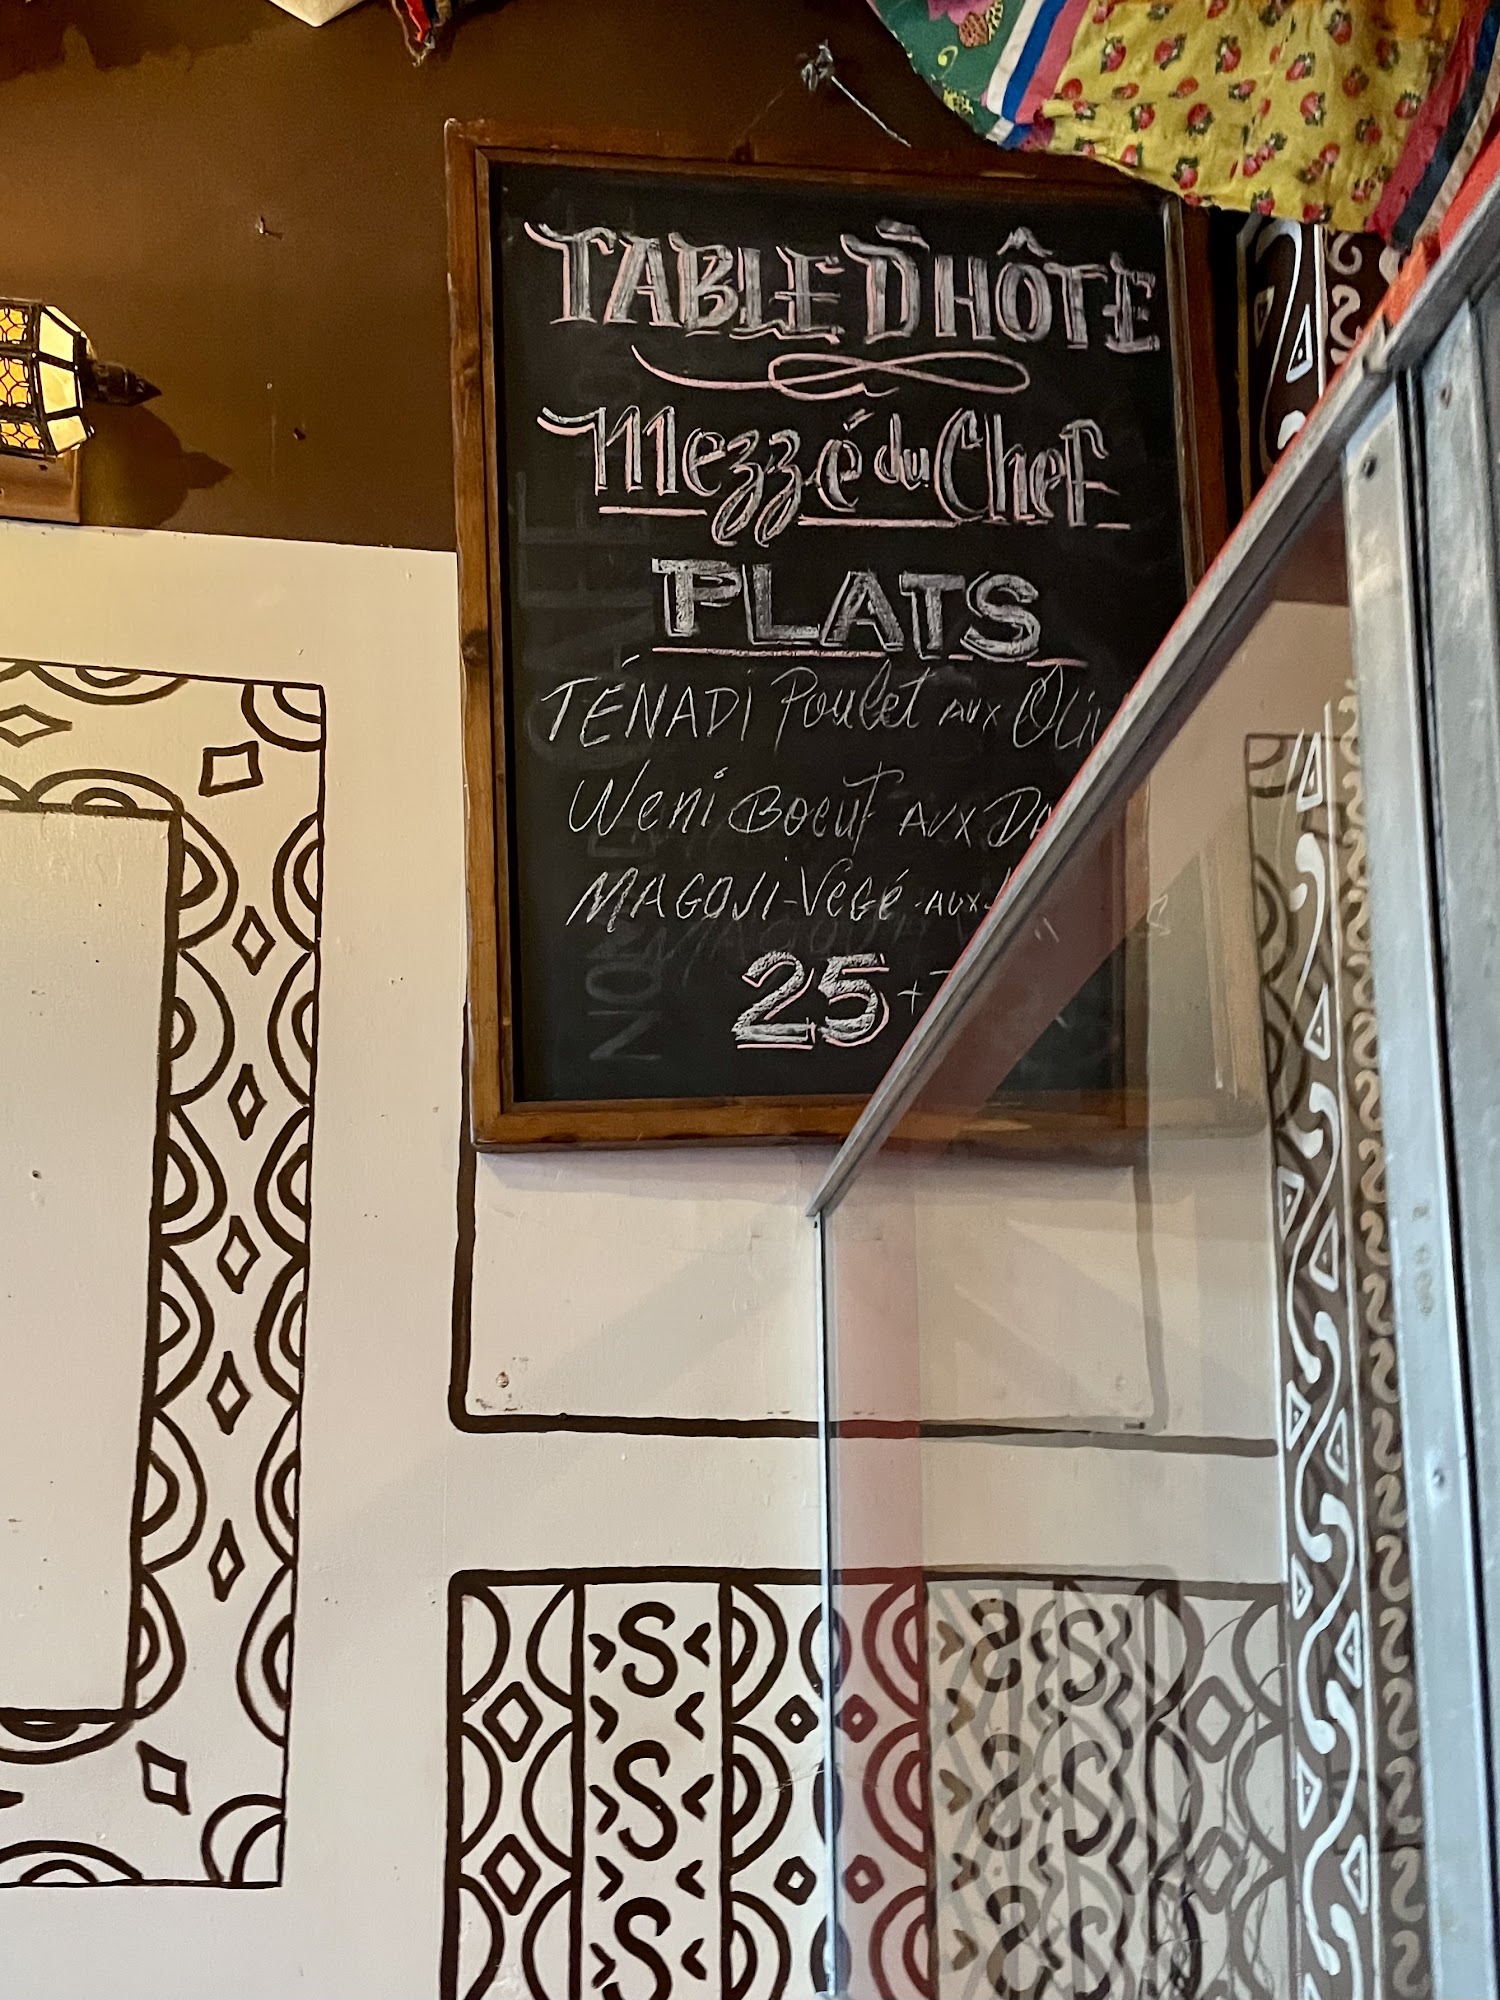 TABLE D'HÔTE
Mezzé du Chef
PLATS
TÉNADI Poulet AUX
Weni Boeuf AUX
MAGOJI-VEGÉ-AUX-
25+